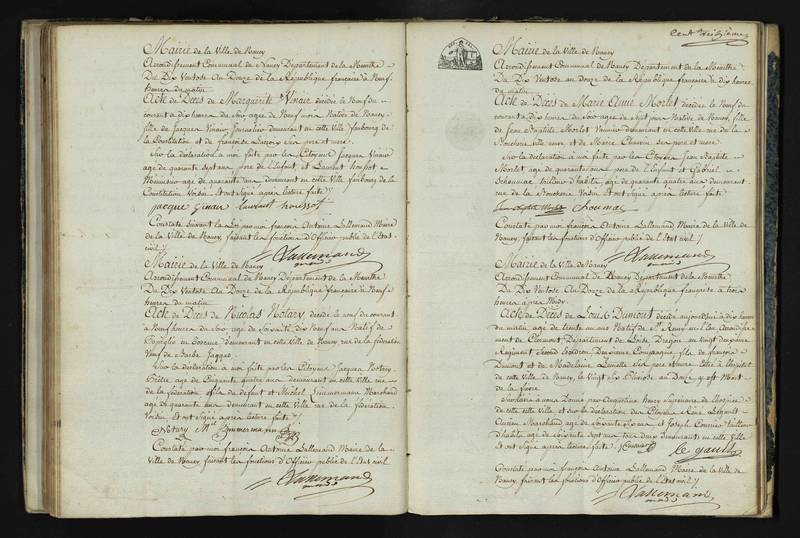 Mairie de la Ville de Nancy
Arrondissement Communal de Nancy Département de la Meurthe
Du Dix Ventose An Douze de la République française à Neuf
heures du matin
Acte de Décès de Marguerite Vinair décédée le Neuf du
courant à dix heures du soir agée de Neuf mois Native de Nancy
fille de Jacques Vinair Journalier demeurant en cette Ville faubourg de
la Constitution et de françoise ses pere et mere.
Sur la déclaration à moi faite par les Citoyens Jacques Vinair
agé de quarante sept ans pere de l'Enfant et Laurent houssot
Menuisier agé de quarante ans demeurant en cette Ville faubourg de la
Constitution Voisin. Et ont Signé après lecture faite
jacque laurent houssot
Constaté Suivant la Loi par moi françois Antoine Lallemand Maire
de la Ville de Nancy, faisant les fonctions d'Officier public de l'Etat
civil
Lallemand
Mairie de la Ville de Nancy
Arrondissement Communal de Nancy Département de la Meurthe
Du Dix Ventose An Douze de la République française à Neuf
heures du matin
Acte de Décès de Nicolas Notary décédé le neuf du courant
à Neuf heures du soir agé de Soixante Dix Neuf ans Natif de
en Lorraine demeurant en cette Ville de Nancy rue de la fédération
Veuf de Barbe
Sur la déclaration à moi faite par les Citoyens Jacques Notary
Prêtre agé de Cinquante quatre ans demeurant en cette Ville rue
de la fédération fils du défunt et Michel Zimmermann Marchand
agé de quarante ans demeurant en cette Ville rue de la fédération
Voisin. Et ont Signé après lecture faite
Notary M Zimmermann
Constaté par moi françois Antoine Lallemand Maire de la
Ville de Nancy faisant les fonctions d'Officier public de l'Etat civil
Lallemand
Cent treizième
Mairie de la Ville de Nancy
Arrondissement Communal de Nancy Département de la Meurthe
Du Dix Ventose an Douze de la République française à Dix heures
du matin
Acte de Décès de Marie Anne Morlet décédée le Neuf du
courant à dix heures du soir agée de Sept jours Native de Nancy, fille
de Jean Baptiste Morlet Vannier demeurant en cette Ville rue de la
et de Marie ses pere et mere.
Sur la déclaration à moi faite par les Citoyens Jean Baptiste
Morlet agé de quarante ans pere de l'Enfant et Gabriel
tailleur d'habits agé de quarante quatre ans demeurant
rue de la Voisin. Et ont Signé après lecture faite
Constaté par moi françois Antoine Lallemand Maire de la Ville de
Nancy, faisant les fonctions d'Officier public de l'Etat civil
Lallemand
Mairie de la Ville de Nancy
Arrondissement Communal de Nancy Département de la Meurthe
Du Dix Ventose An Douze de la République française à trois
heures après Midy.
Acte de Décès de Louis Dumont décédé aujourd'hui à dix heures
du matin agé de trente un ans Natif de St Remy en l'an
de Clermont Département de Dragon au Vingt deuxieme
Regiment Second Escadron Deuxieme Compagnie, fils de françois
Dumont et de Madelaine ses pere et mere Entré à l'hopital
de cette Ville de Nancy, le Vingt Six Pluviose an Douze y est Mort
de la fievre
Nancy Supérieure de l'hospice
de cette Ville et sur la déclaration des Citoyens
Ancien Marchand agé de soixante et Joseph tailleur
d'habits agé de soixante sept ans tous deux demeurant en cette Ville
Et ont Signé après lecture faite
le gault
Constaté par moi françois Antoine Lallemand Maire de la Ville de
Nancy, faisant les fonctions d'Officier public de l'Etat civil
Lallemand